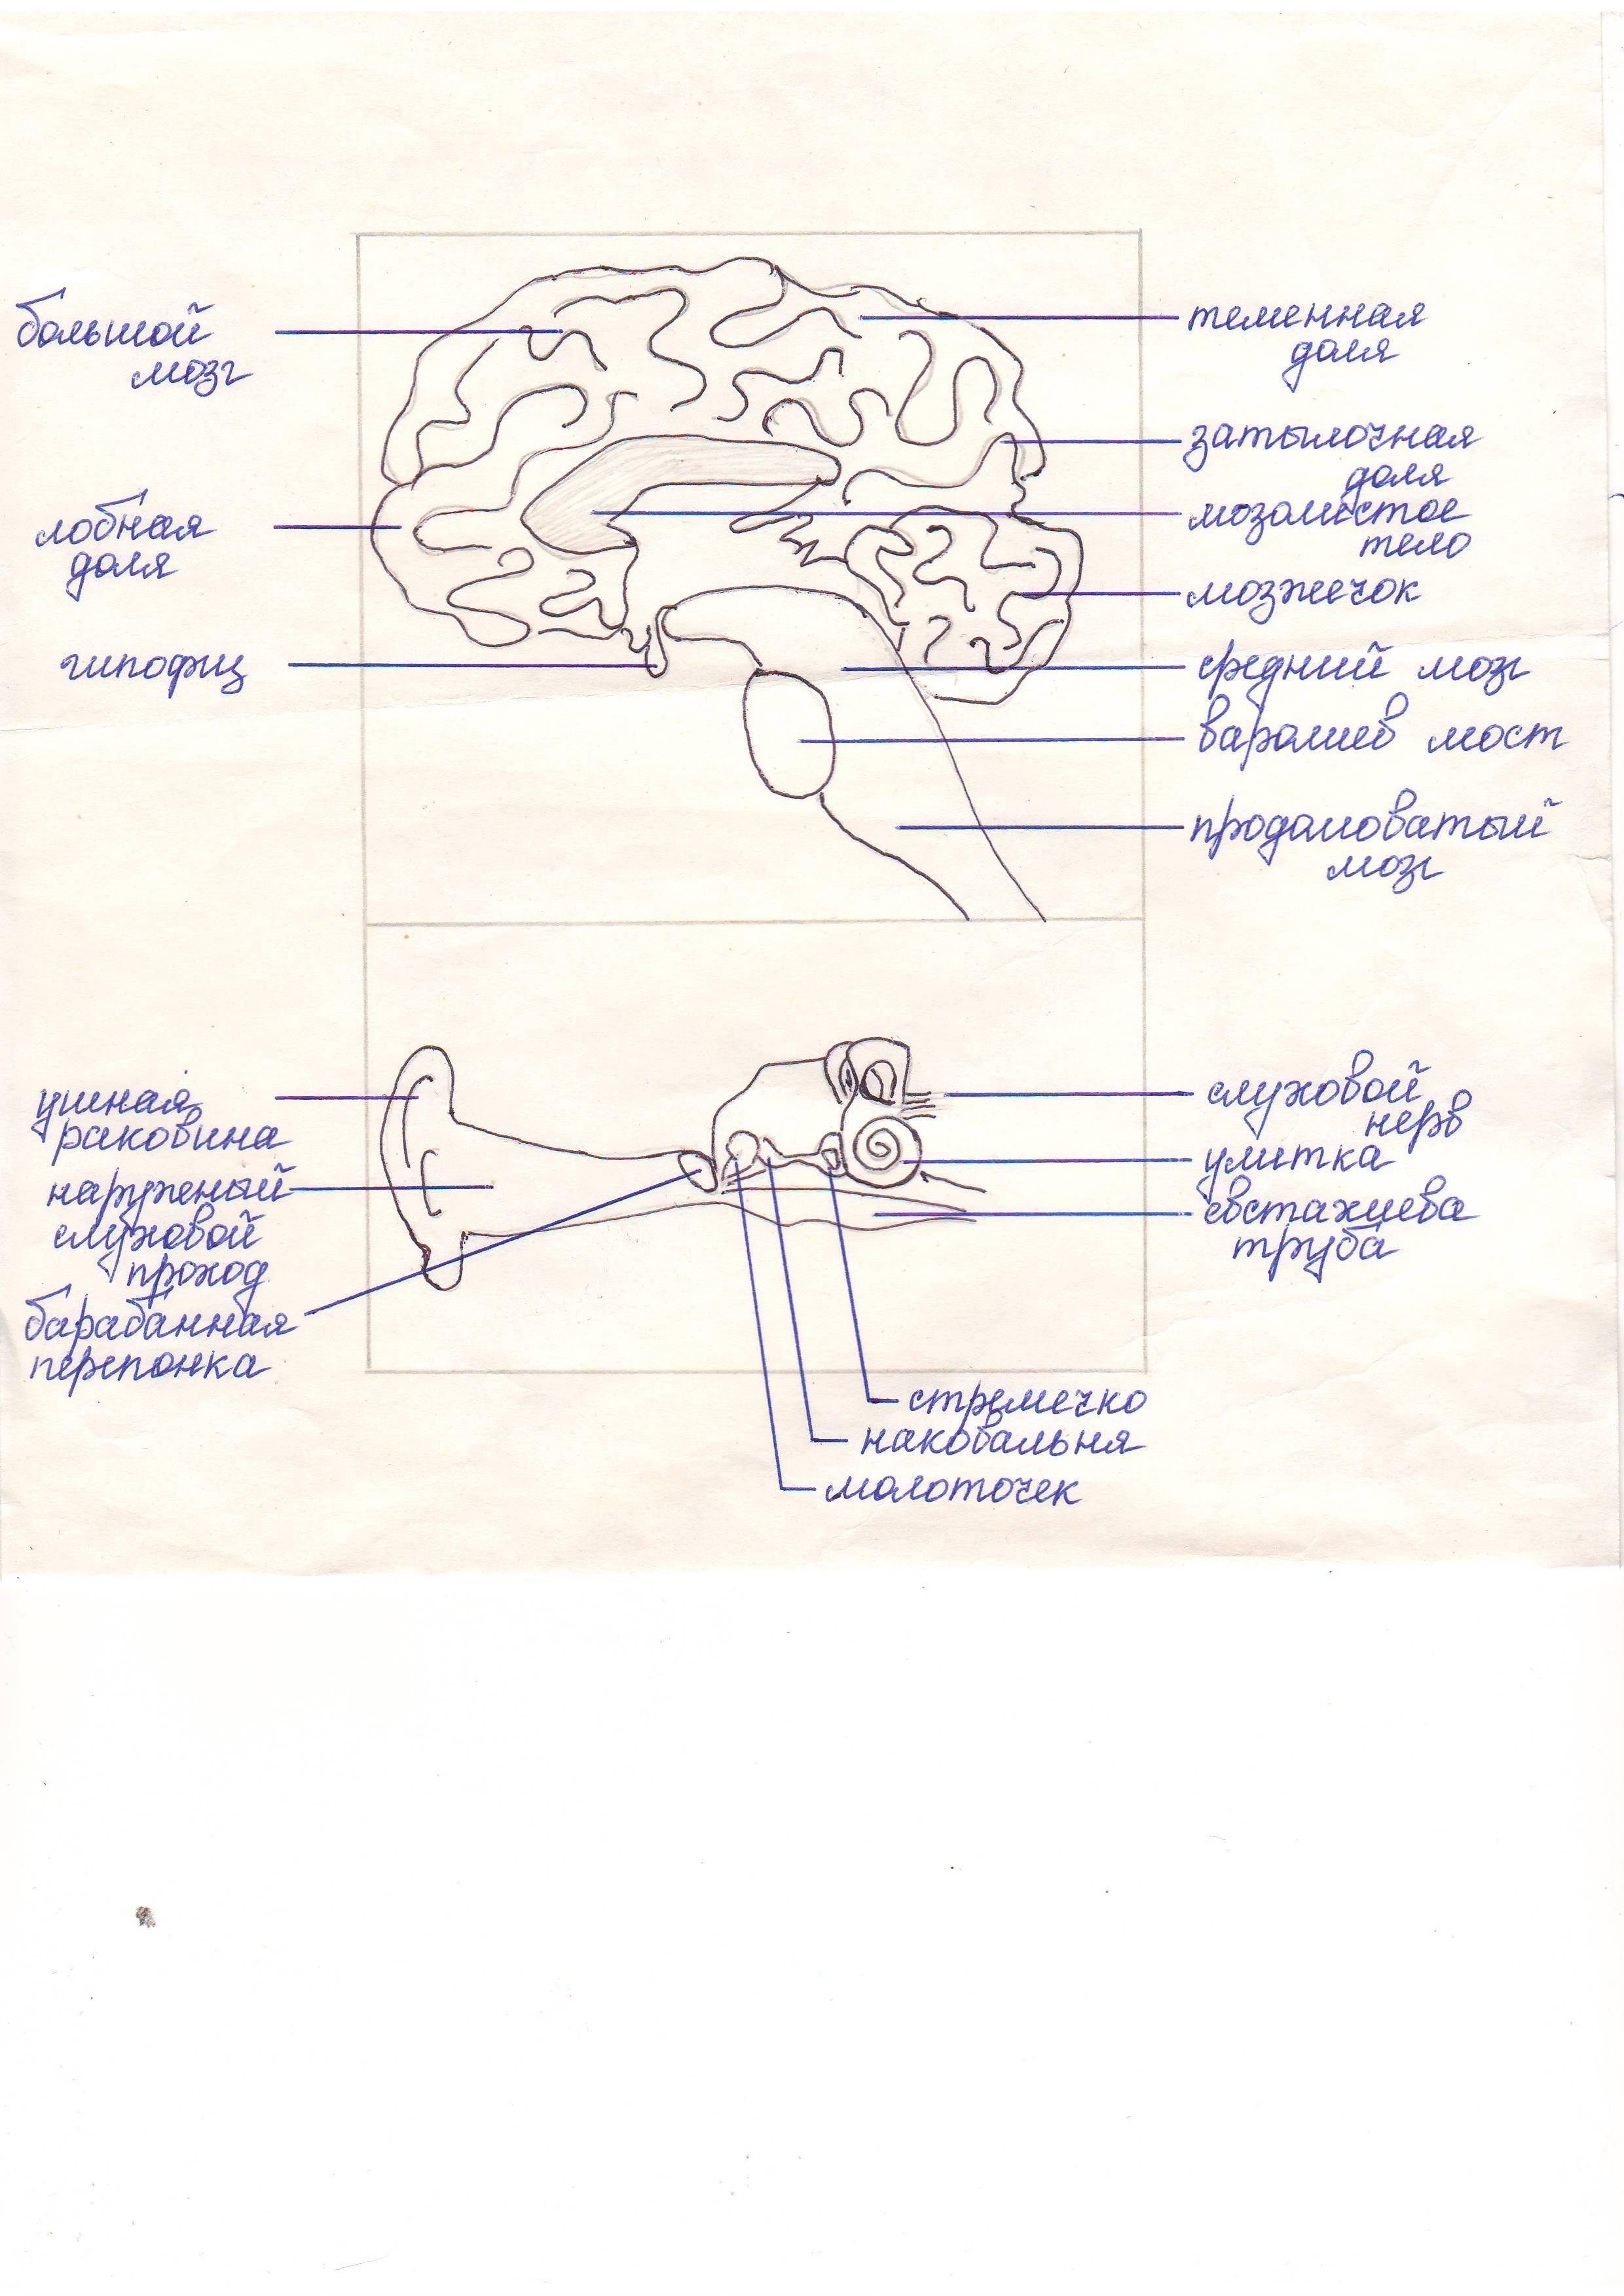 большой
мозг
лобная
доля
гипофиз
теменная
доля
затылочная
доля
мозолистое
тело
мозжечок
средний мозг
варолиев мост
продолговатый
мозг
ушная
раковина
наружный
слуховой
проход
барабанная
перепонка
слуховой
нерв
улитка
евстахиева
труба
стремечко
наковальня
молоточек